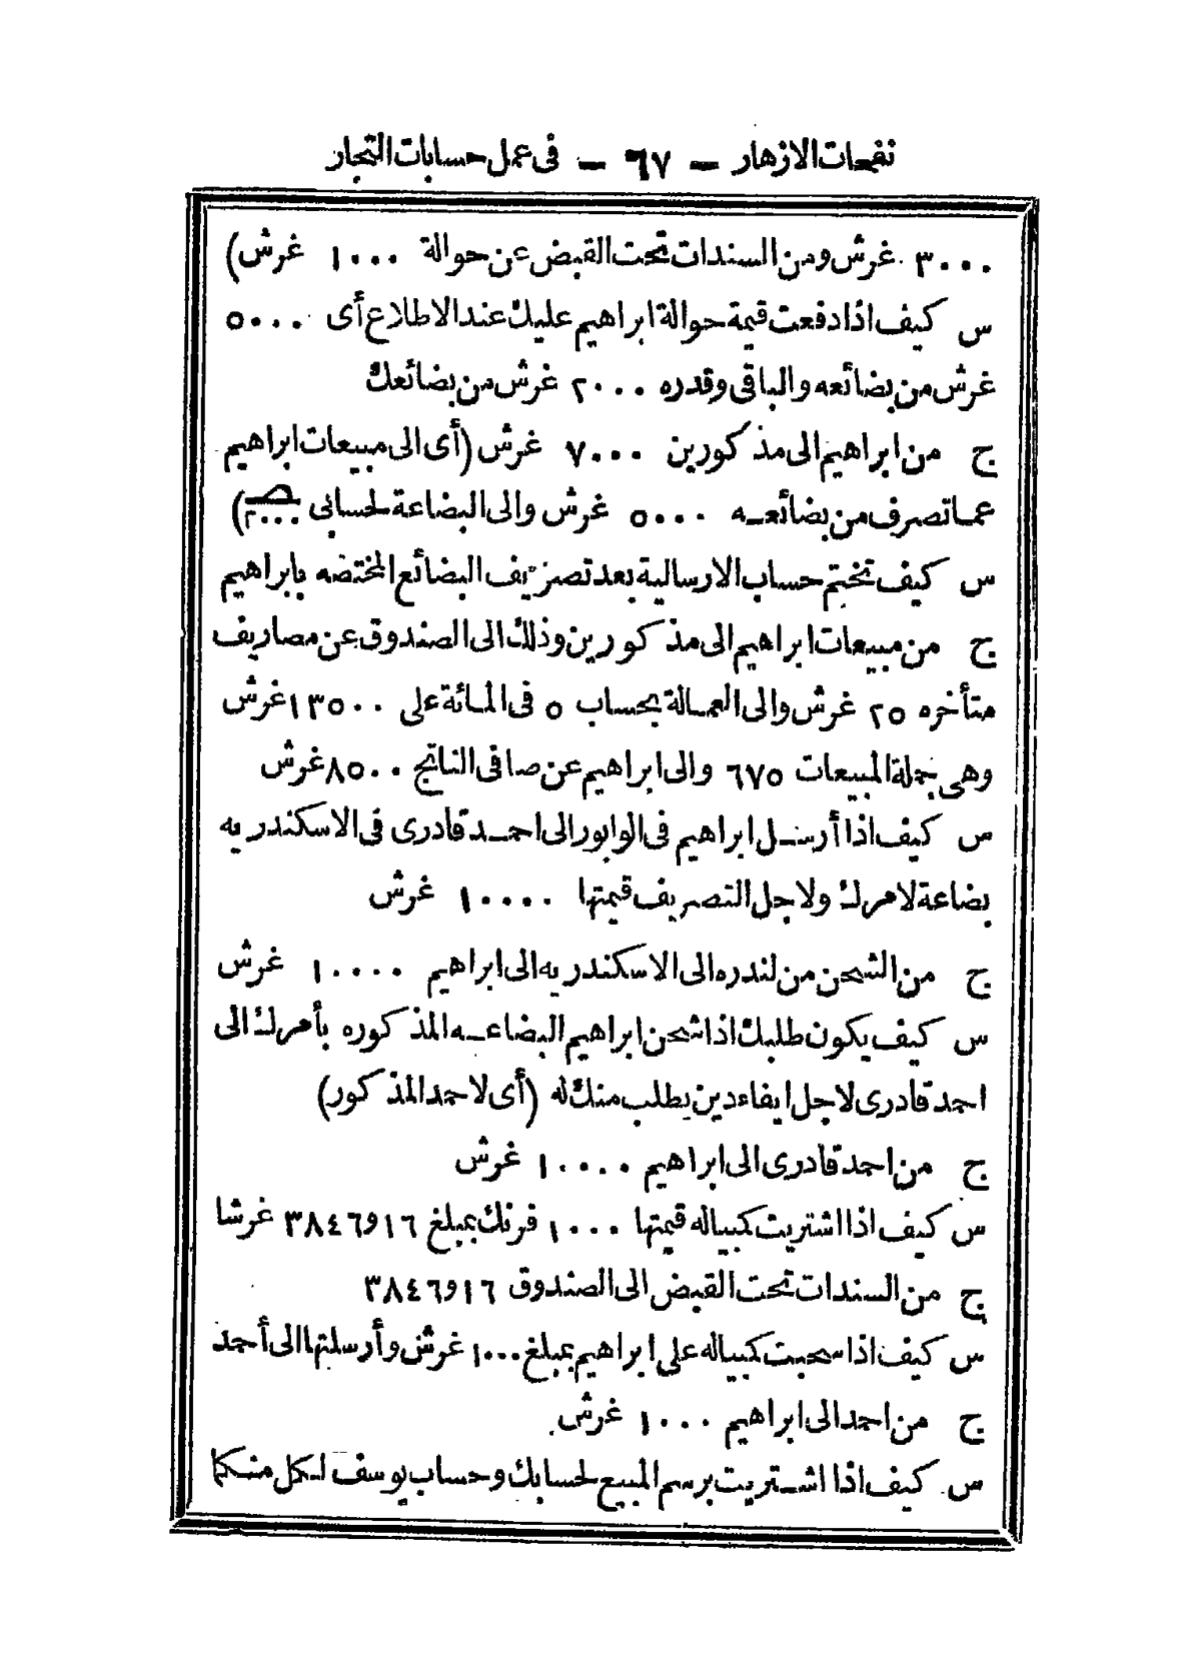 نفحات الازهار – ٦٧ – فى عمل حسابات التجار
٣٠٠٠ غرش ومن السندات تحت القبض عن حوالة ١٠٠٠ غرش)
س كيف اذا دفعت قيمة حوالة ابراهيم عليك عند الاطلاع أى ٥٠٠٠
غرش من بضائعه والباقى وقدره ٢٠٠٠ غرش من بضائعك
ج من ابراهيم الى مذكورين ٧٠٠٠ غرش (أى الى مبيعات ابراهيم
عما تصرف من بضائعه ٥٠٠٠ غرش والى البضاعة لحسابى ٢٠٠٠)
س كيف تختم حساب الارسالية بعد تصريف البضائع المختضه بابراهيم
ج من مبيعات ابراهيم الى مذكورين وذلك الى الصندوق عن مصاريف
متأخره ٢٥ غرش والى العمالة بحساب ٥ فى المائة على ١٣٥٠٠ غرش
وهى جملة المبيعات ٦٧٥ والى ابراهيم عن صافى الناتج ٨٥٠٠ غرش
س كيف اذا أرسل ابراهيم فى الوابور الى احمد قادرى فى الاسكندريه
بضاعة لامرك ولاجل التصريف قيمتها ١٠٠٠٠ غرش
ج من الشحن من لندره الى الاسكندريه الى ابراهيم ١٠٠٠٠ غرش
س كيف يكون طلبك اذا شحن ابراهيم البضاعه المذكوره بأمرك الى
احمد قادرى لاجل ايفاء دين يطلب منك له (أى لاحمد المذكور)
ج من احمد قادرى الى ابراهيم ١٠٠٠٠ غرش
س كيف اذا اشتريت كمبياله قيمتها ١٠٠٠ فرنك بمبلغ ٣٨٤٦و١٦ غرشا
ج من السندات تحت القبض الى الصندوق ٣٨٤٦و١٦
س كيف اذا سحبت كمبياله على ابراهيم بمبلغ ١٠٠٠ غرش وأرسلتها الى أحمد
ج من احمد الى ابراهيم ١٠٠٠ غرش
س كيف اذا اشتريت برسم المبيع لحسابك وحساب يوسف لكل منكما